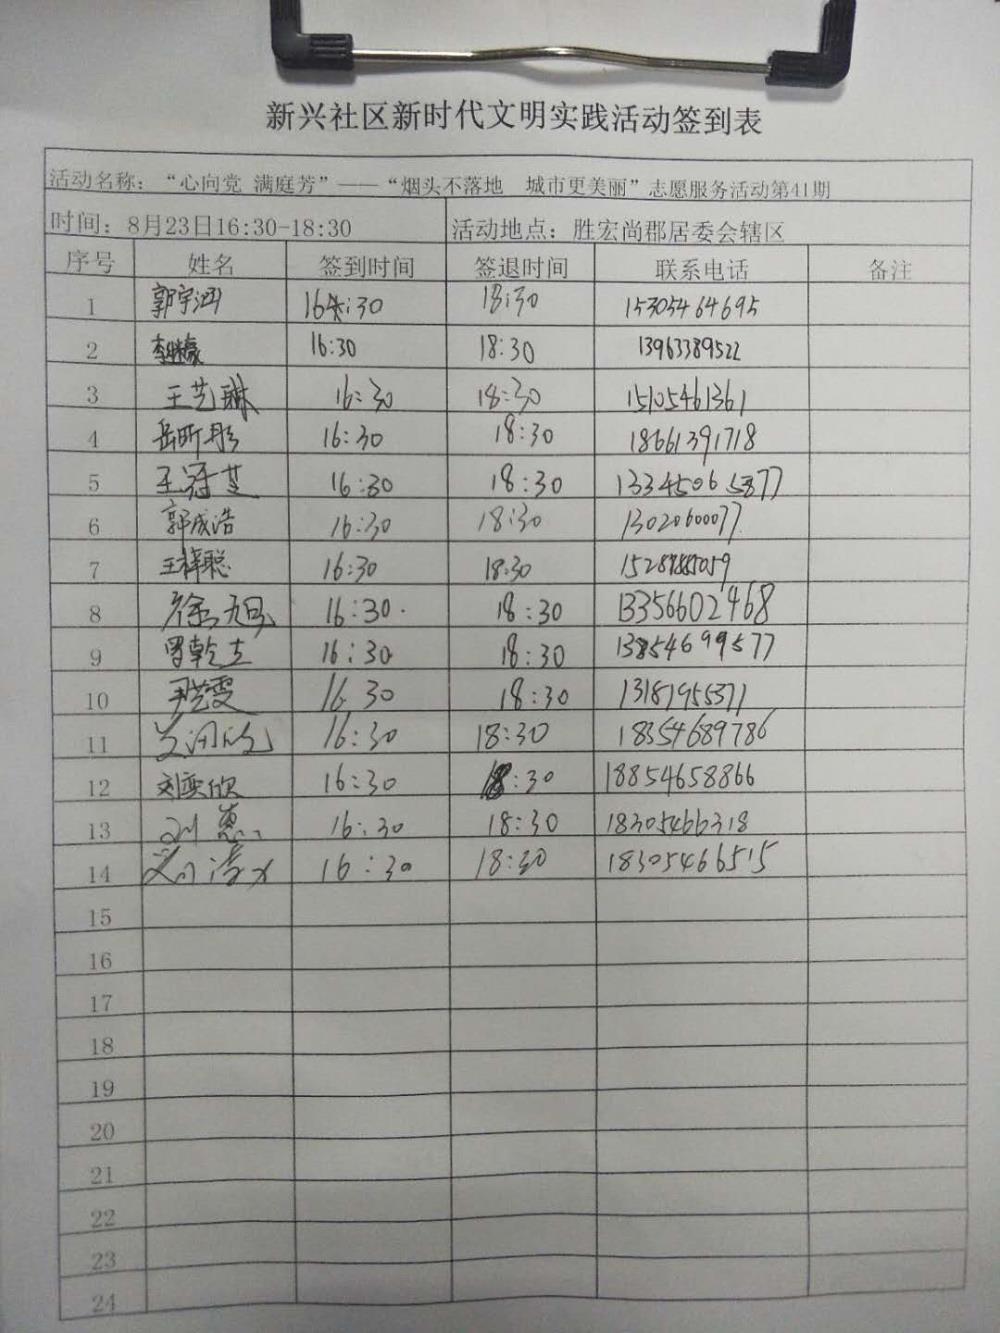 新兴社区新时代文明实践活动签到表
活动名称：“心向党 满庭芳”——“烟头不落地 城市更美丽”志愿服务活动第41期
时间：8月23日16:30-18:30 活动地点：胜宏尚郡居委会辖区
序号 姓名 签到时间 签退时间 联系电话 备注
1 郭宇涵 16:30 18:30 15305464695
2 16:30 18:30 13963389522
3 王艺琳 16:30 18:30 15105461361
4 岳昕彤 16:30 18:30 18661391718
5 王冠芝 16:30 18:30
6 郭成浩 16:30 18:30 13020600077
7 王梓聪 16:30 18:30
8 徐旭 16:30 18:30 13356602468
9 16:30 18:30 13854699577
10 16:30 18:30 13181955371
11 16:30 18:30 18354689786
12 刘奕欣 16:30 18:30 18854658866
13 刘惠 16:30 18:30 18305466318
14 16:30 18:30 18305466515
15
16
17
18
19
20
21
22
23
24